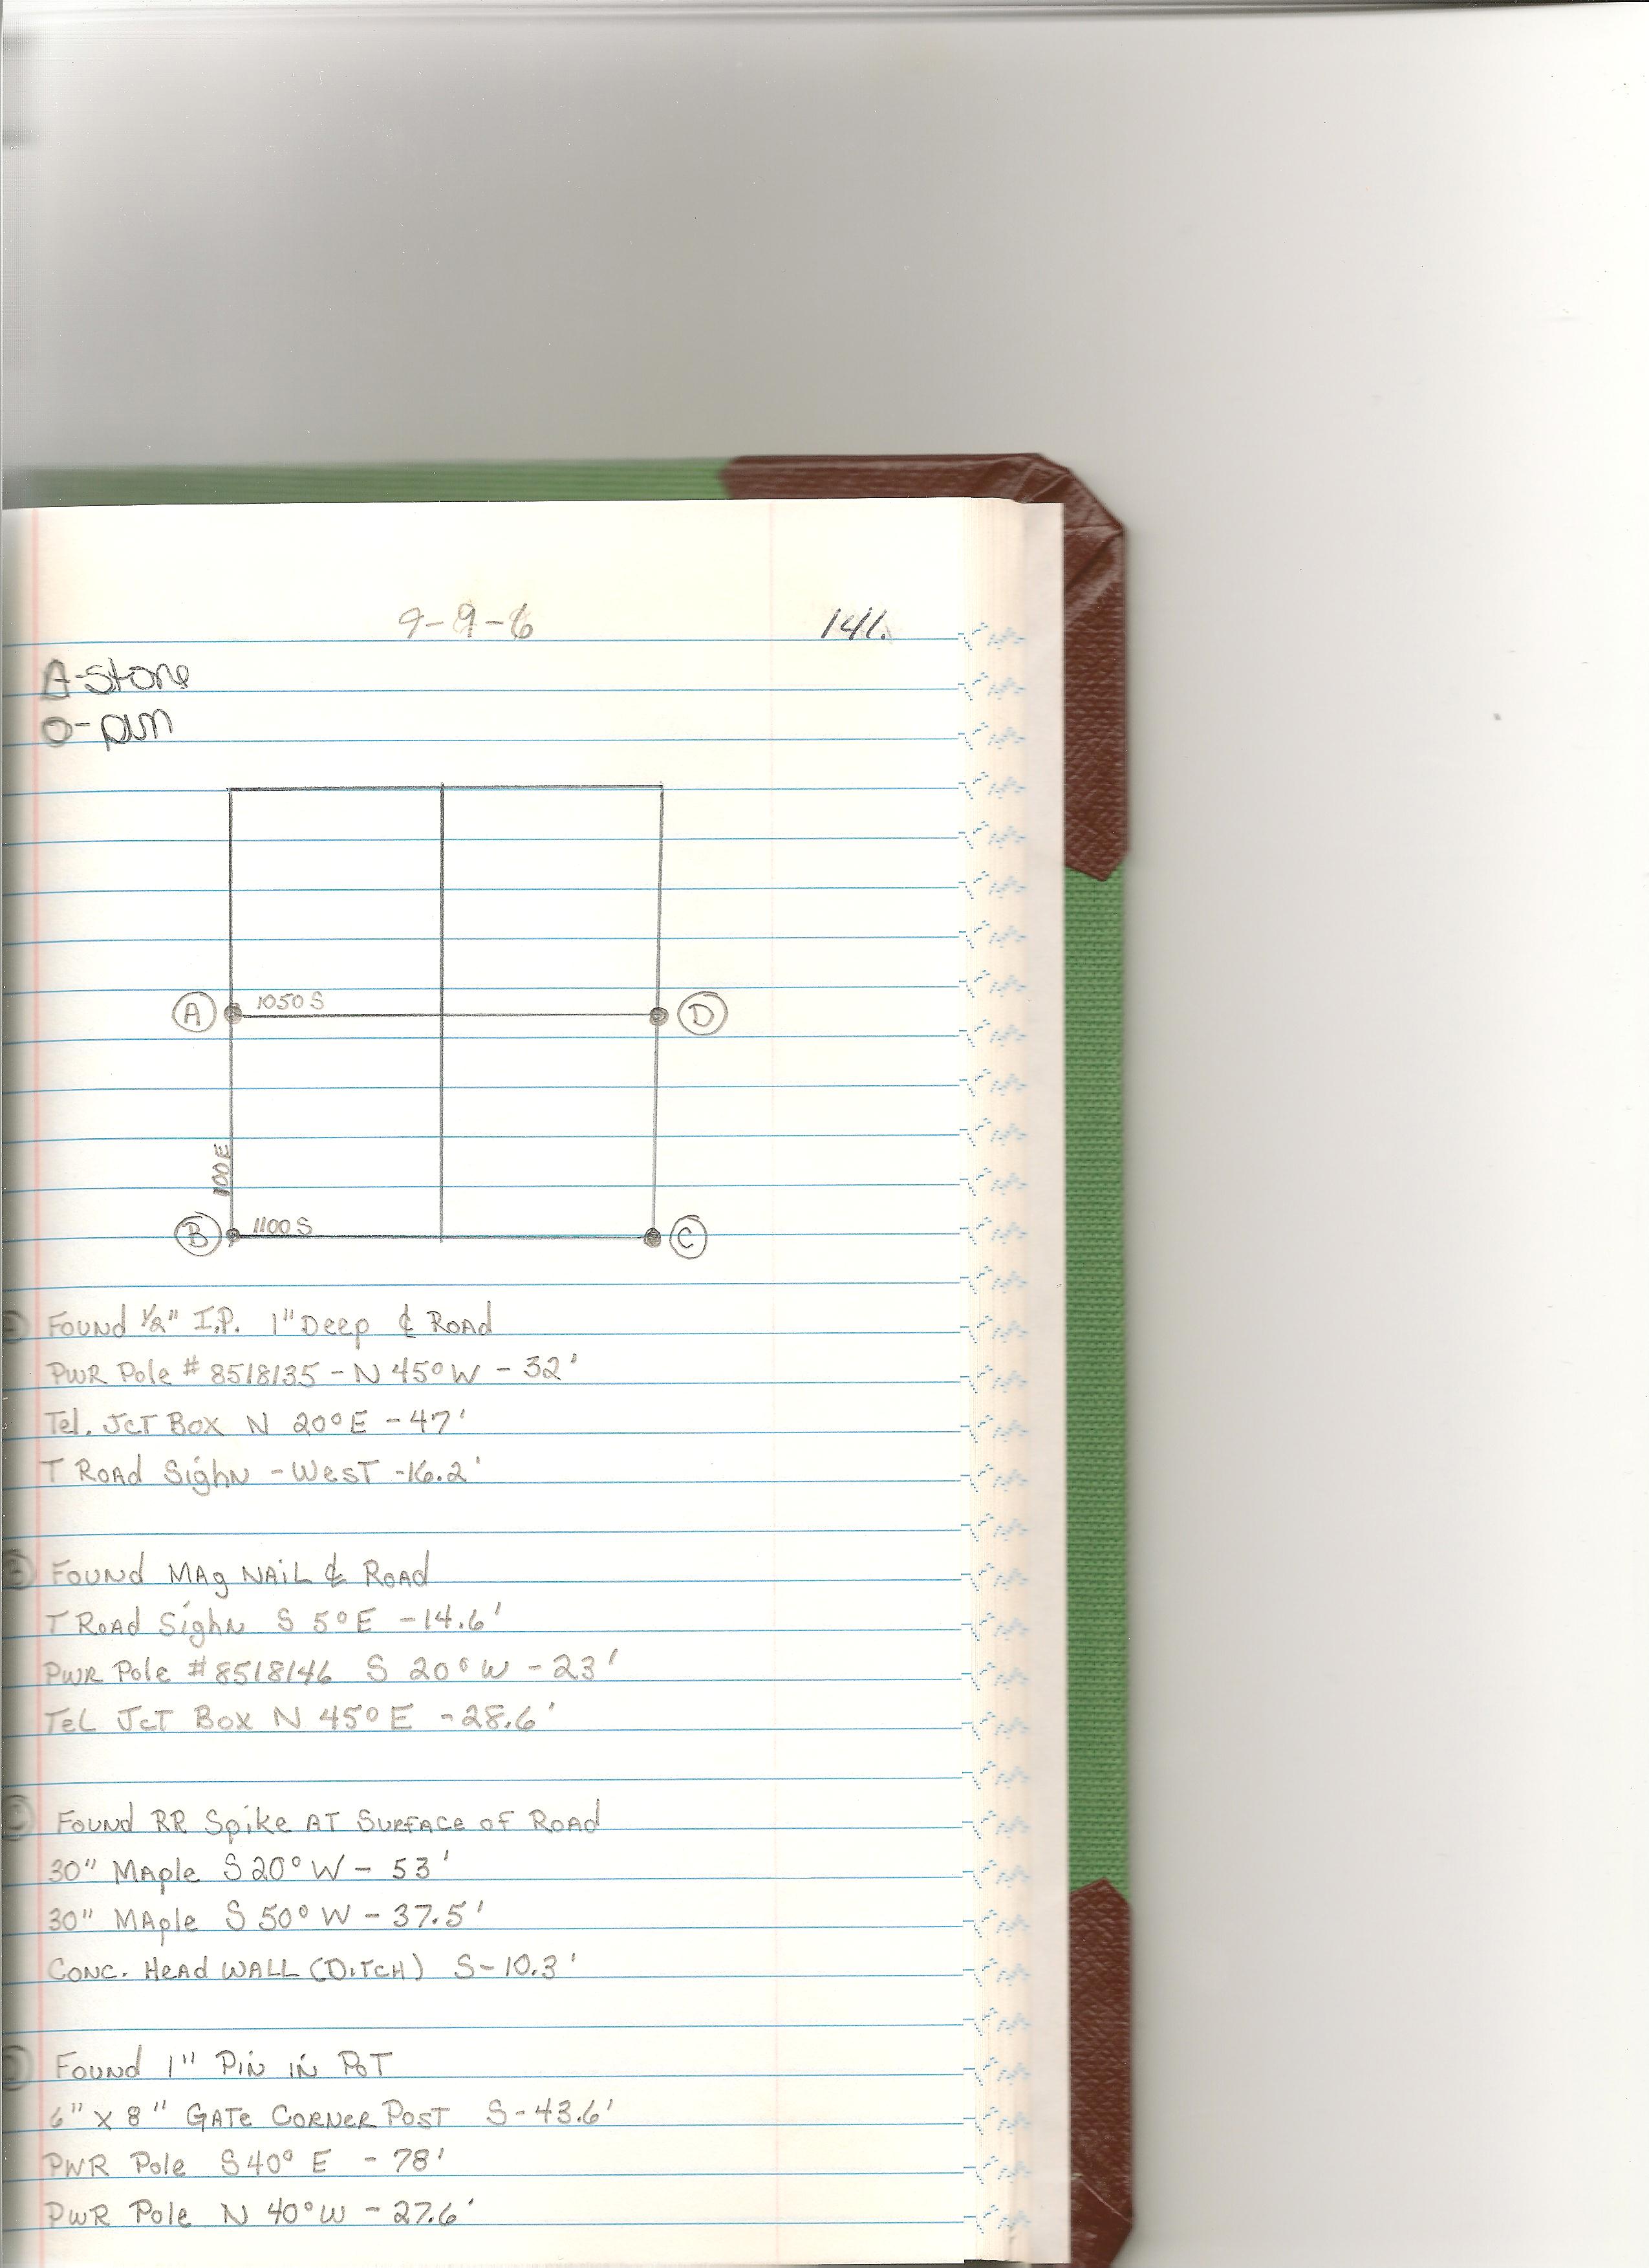 9-9-6
141.
A-stone
O-pin
A
1050 S
D
100E
B
1100 S
C
Found 1/2" I.P. 1" Deep ℄ Road
PWR Pole # 8518135 - N 45° W - 32'
Tel. Jct Box N 20° E - 47'
T Road Sighn - West - 16.2'
B Found Mag Nail ℄ Road
T Road Sighn S 5° E - 14.6'
PWR Pole # 8518146 S 20° W - 23'
Tel Jct Box N 45° E - 28.6'
C Found RR Spike at Surface of Road
30" Maple S 20° W - 53'
30" Maple S 50° W - 37.5'
Conc. Head Wall (Ditch) S - 10.3'
D Found 1" Pin in Pot
6" x 8" Gate Corner Post S - 43.6'
PWR Pole S 40° E - 78'
PWR Pole N 40° W - 27.6'